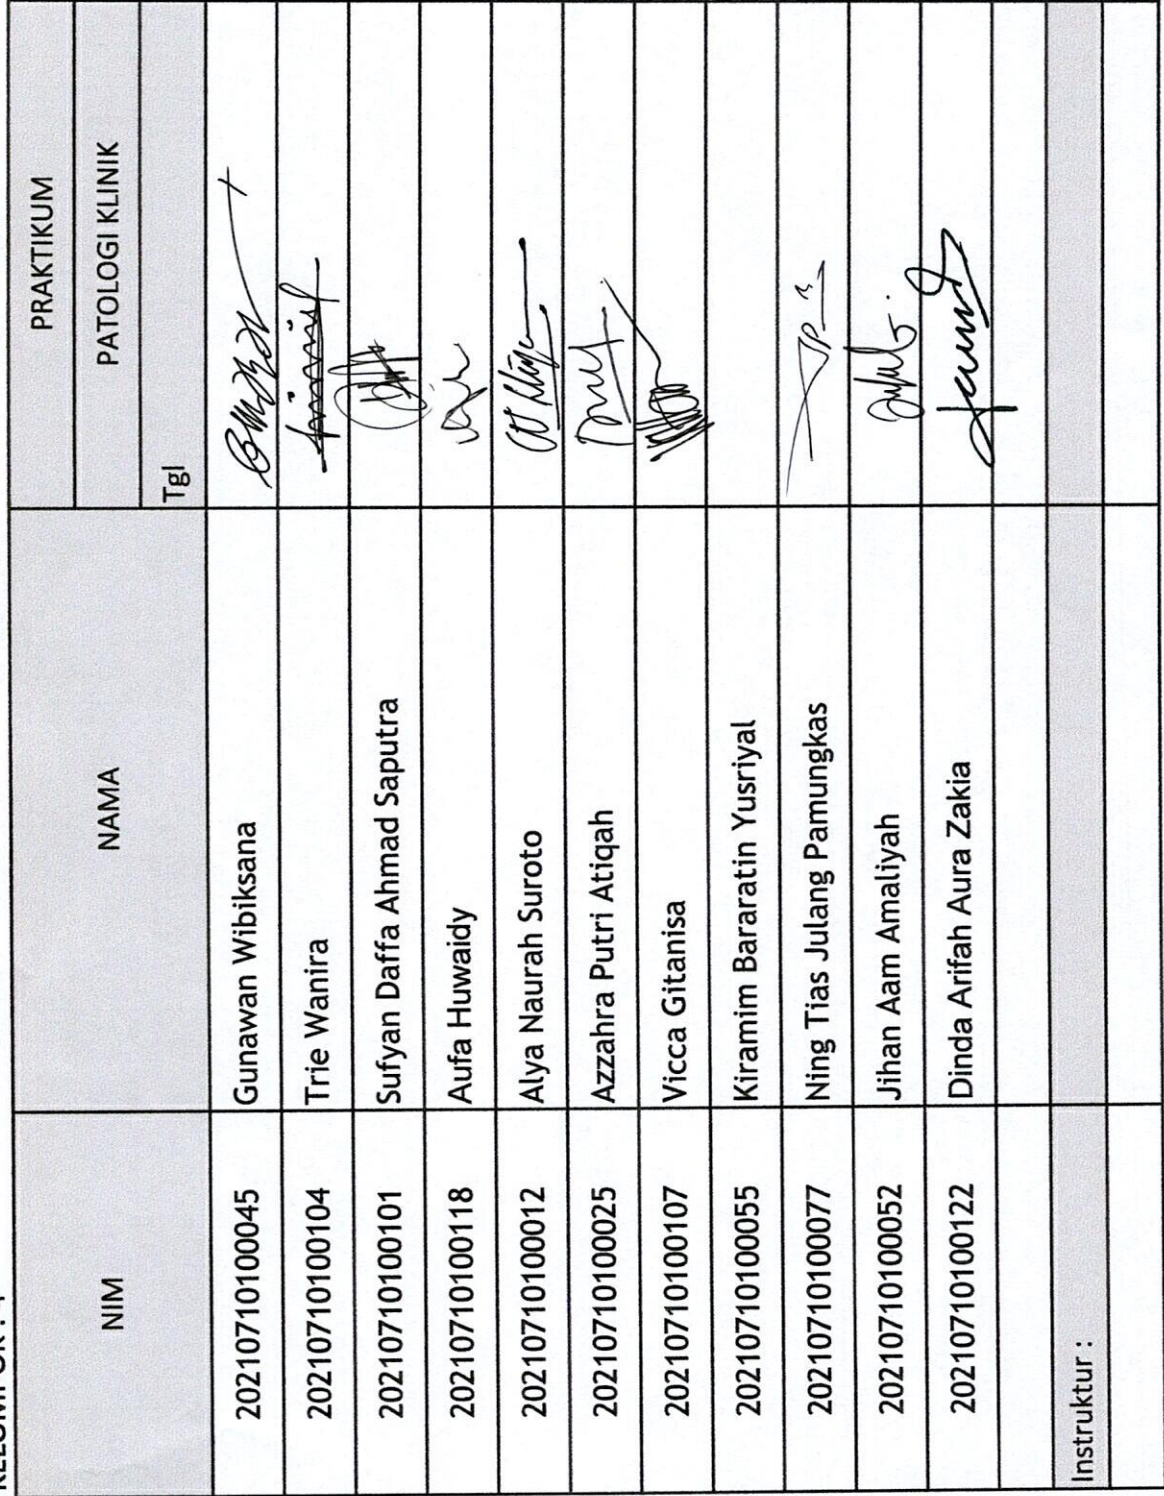 NIM NAMA PRAKTIKUM
PATOLOGI KLINIK
Tgl
202107101000045 Gunawan Wibiksana
202107101000104 Trie Wanira
202107101000101 Sufyan Daffa Ahmad Saputra
202107101000118 Aufa Huwaidy
202107101000012 Alya Naurah Suroto
202107101000025 Azzahra Putri Atiqah
202107101000107 Vicca Gitanisa
202107101000055 Kiramim Bararatin Yusriyal
202107101000077 Ning Tias Julang Pamungkas
202107101000052 Jihan Aam Amaliyah
202107101000122 Dinda Arifah Aura Zakia
Instruktur :